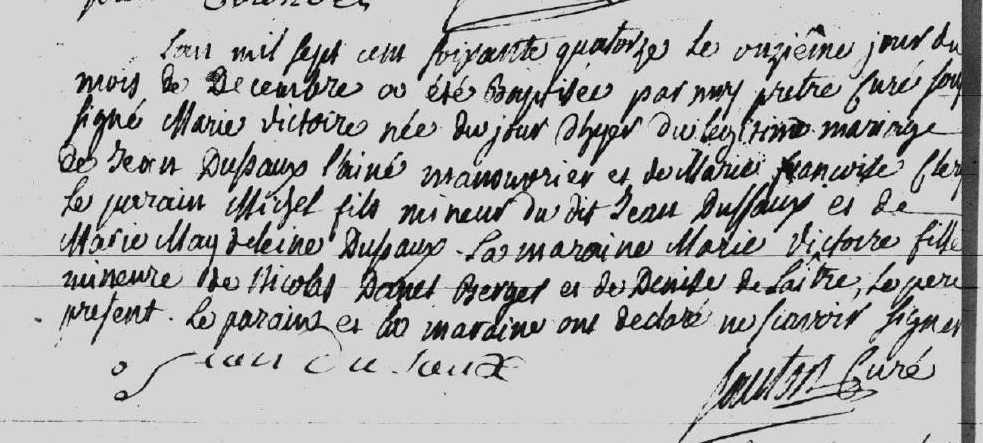 Lan mil sept cent soixante quatorze le onzieme jour du
mois de Decembre a été Baptisée par moy pretre Curé sous
signé Marie Victoire née du jour dhyer du legitime mariage
de Jean Dussaux l'ainé manouvrier et de Marie francoise Clery
le parain Michel fils mineur du dit Jean Dussaux et de
Marie Magdeleine Dussaux. La maraine Marie Victoire fille
mineure de Nicolas Danet Berger et de Denise de Laître, le pere
present. le parain et la maraine ont declaré ne scavoir signer
jean du saux
Curé